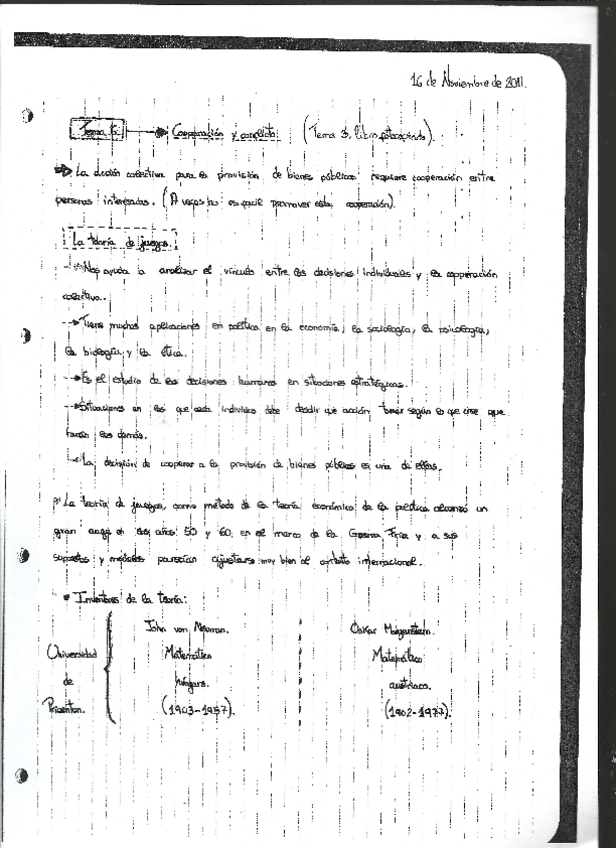 16 de Noviembre de 2011.
Tema 5: Cooperación y conflicto. (Tema 3, libro).
La decisión colectiva para la provisión de bienes públicos requiere cooperación entre
personas interesadas. (A veces no es facil promover esta cooperación).
La teoría de juegos.
Nos ayuda a analizar el vínculo entre las decisiones individuales y la cooperación
colectiva.
Tiene muchas aplicaciones en política en la economía, la sociología, la psicología,
la biología y la ética.
Es el estudio de las decisiones humanas en situaciones estratégicas.
Situaciones en las que cada individuo debe decidir que acción tomar según lo que cree que
harán los demás.
La decisión de cooperar a la provisión de bienes públicos es una de ellas.
La teoría de juegos, como método de la teoría económica de la política alcanzó un
gran auge en los años 50 y 60, en el marco de la Guerra Fría y a sus
supuestos y modelos parecían ajustarse muy bien al ámbito internacional.
Inventores de la teoría:
John von Neuman. Oskar Morgenstern.
Universidad Matemático Matemático
de húngaro. austriaco.
Princenton. (1903-1957). (1902-1977).